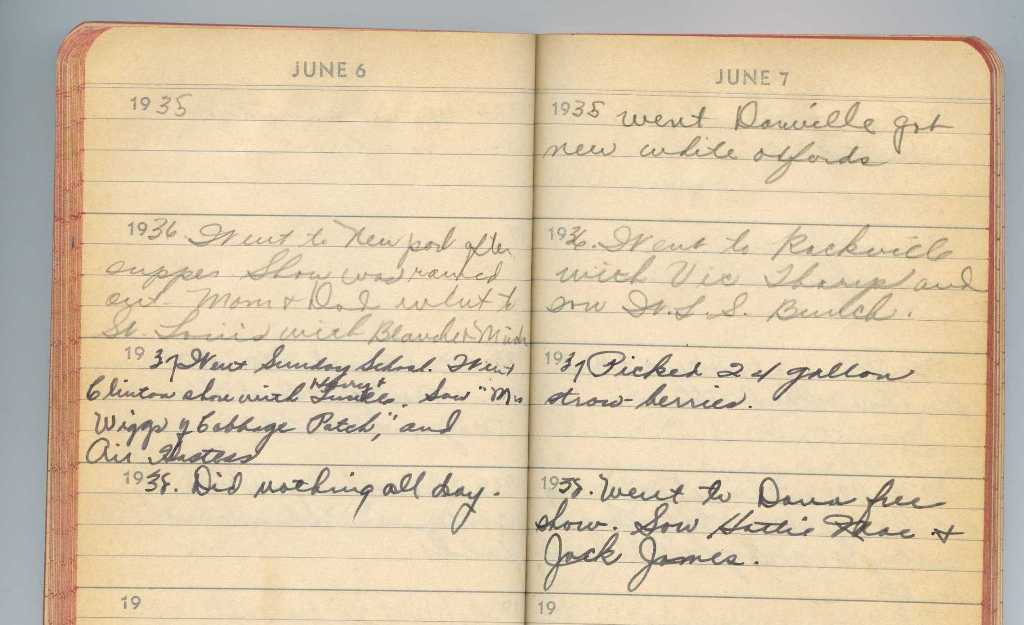 JUNE 6
1935
1936. Went to New pool after
supper Show was rained
out. Mom & Dad went to
St. Louis with Blanche &
1937 Went Sunday School. Went
Clinton show with Harry &
. Saw "Mrs
Wiggs of Cabbage Patch," and
Air Hostess
1938. Did nothing all day.
19
JUNE 7
1935 went Danville got
new white oxfords
1936. Went to Rockville
with Vic Tharp and
saw Dr. L. S. Bunch.
1937 Picked 24 gallon
straw-berries.
1938. Went to Dana free
show. Saw Hattie Mae &
Jack James.
19